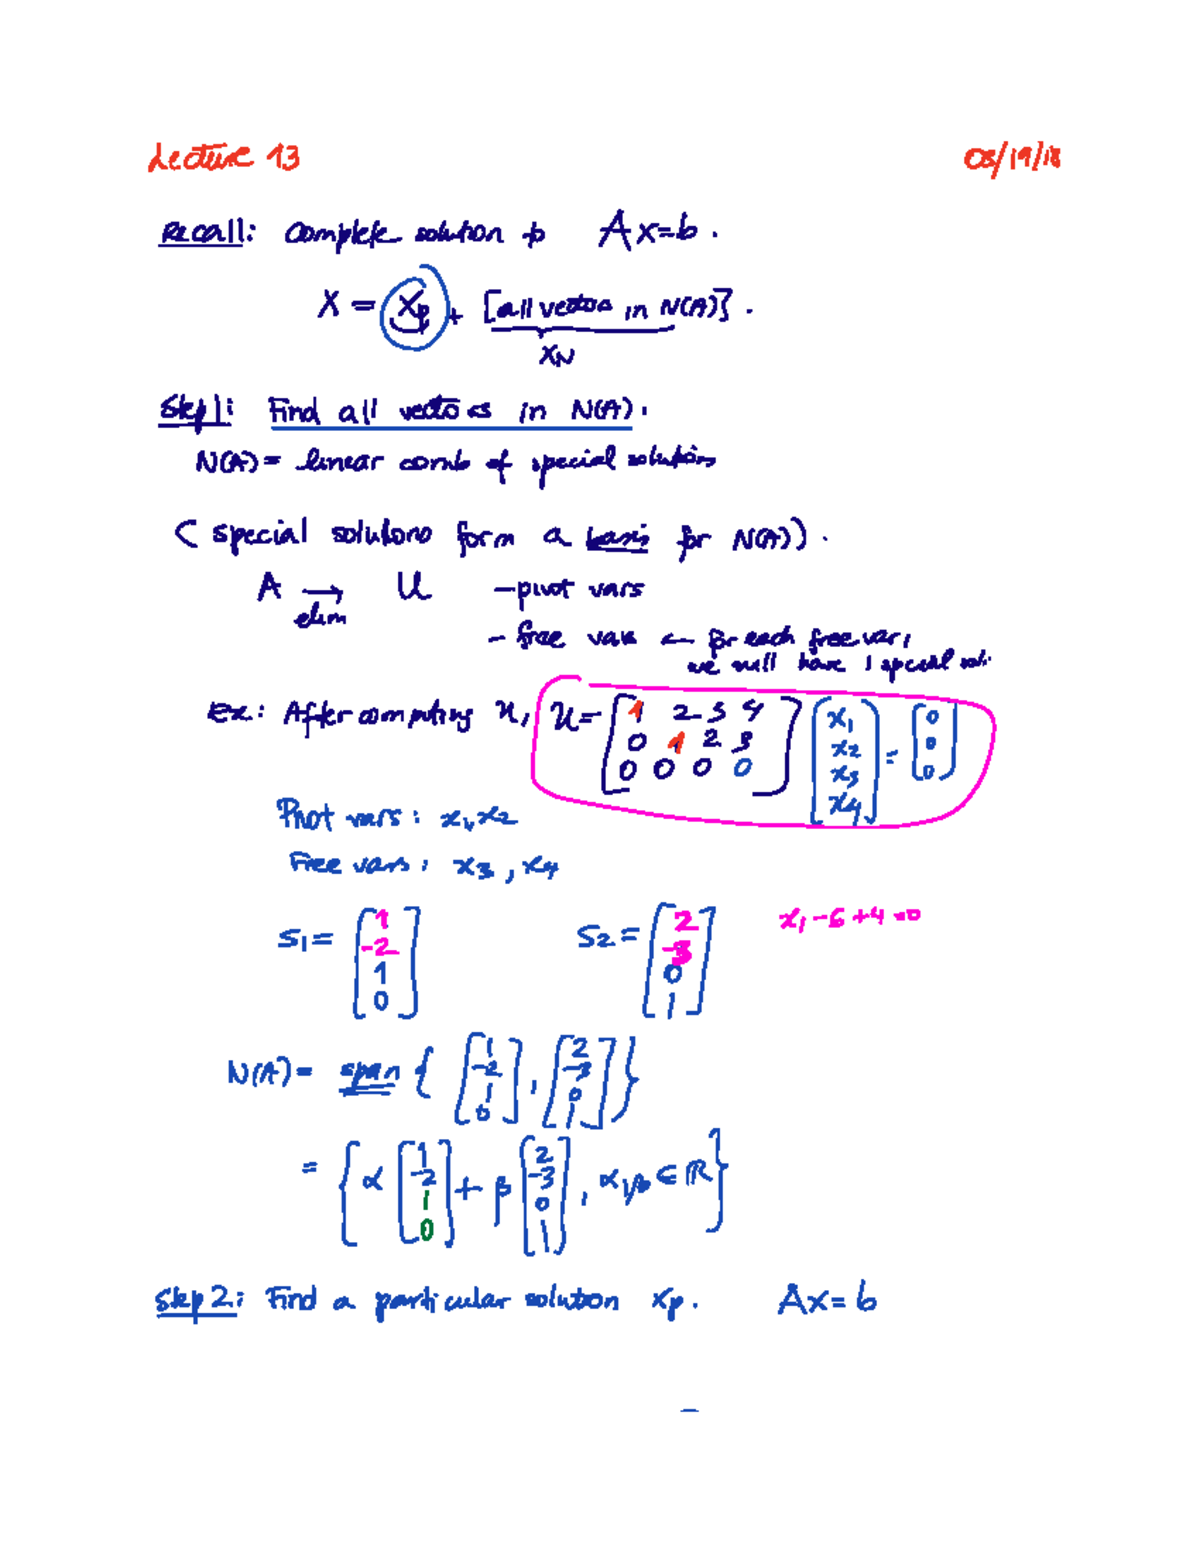 Lecture 13 03/19/18
Recall: Complete solution to Ax=b.
X = Xp + [all vectors in N(A)].
XN
Step 1: Find all vectors in N(A).
N(A) = linear comb of special solutions
(special solutions form a basis for N(A)).
A → U - pivot vars
elim
- free vars ← for each free var,
we will have 1 special sol.
Ex: After computing U, U = [1 2 3 4; 0 1 2 3; 0 0 0 0] [x1; x2; x3; x4] = [0; 0; 0]
Pivot vars: x1, x2
Free vars: x3, x4
S1 = [1; -2; 1; 0] S2 = [2; -3; 0; 1] x1 - 6 + 4 = 0
N(A) = span { [1; -2; 1; 0], [2; -3; 0; 1] }
= { α [1; -2; 1; 0] + β [2; -3; 0; 1], α, β ∈ ℝ }
Step 2: Find a particular solution xp. Ax = b